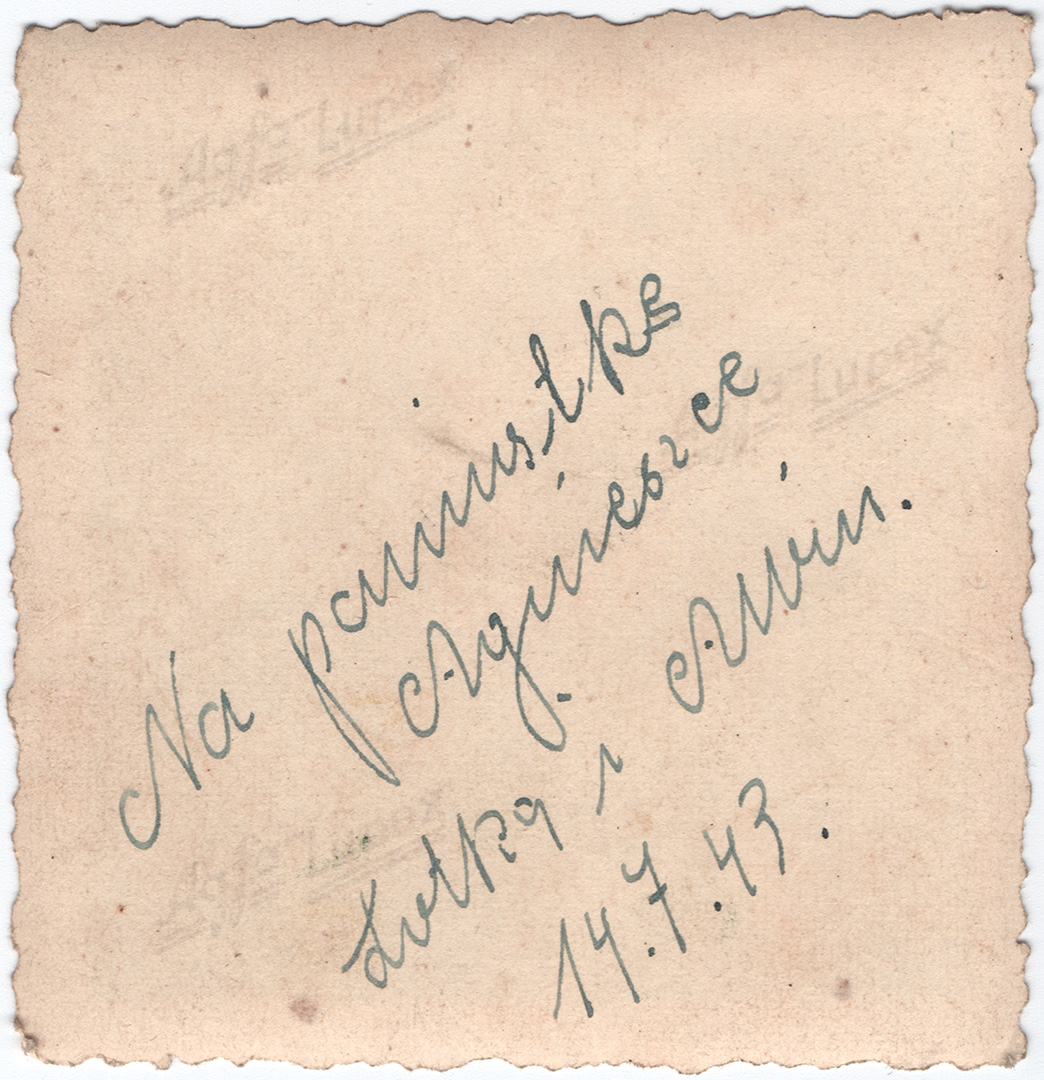 Agfa-Lupex
Agfa-Lupex
Na pamiątkę
Agnieszce
Lotka i Alwin.
14.7.43.
Agfa-Lupex